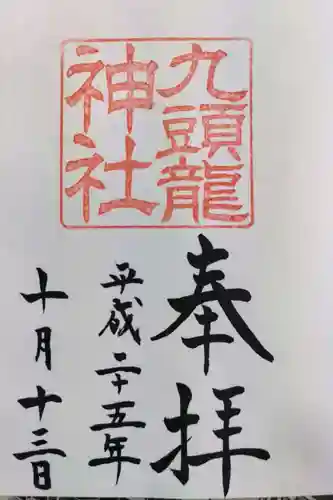 九頭龍
神社
奉拝
平成二十五年
十月十三日